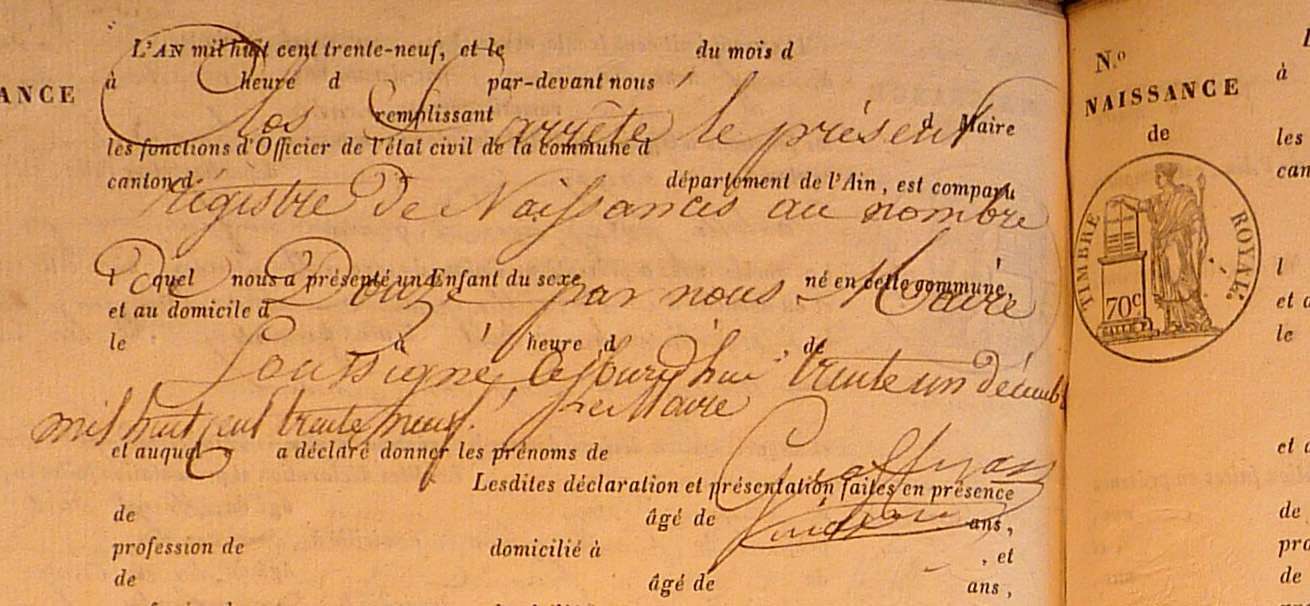 L'AN mil huit cent trente-neuf, et le du mois d
à heure d par-devant nous
Clos & arrêté le présent
remplissant d Maire
les fonctions d'Officier de l'état civil de la commune d
canton d département de l'Ain, est comparu
régistre de Naissances au nombre
l quel nous a présenté un Enfant du sexe né en cette commune,
De Douze par nous Maire
et au domicile d
le à heure d , de
soussigné, cejourd'hui trente un décembre
mil huit cent trente neuf. Le Maire
et auquel a déclaré donner les prénoms de
Lesdites déclaration et présentation faites en présence
de âgé de ans,
profession de domicilié à , et
de âgé de ans,
ANCE
N.o
NAISSANCE
de
TIMBRE ROYAL.
70c
l
à
les
can
l
et a
le
et a
de
pro
de